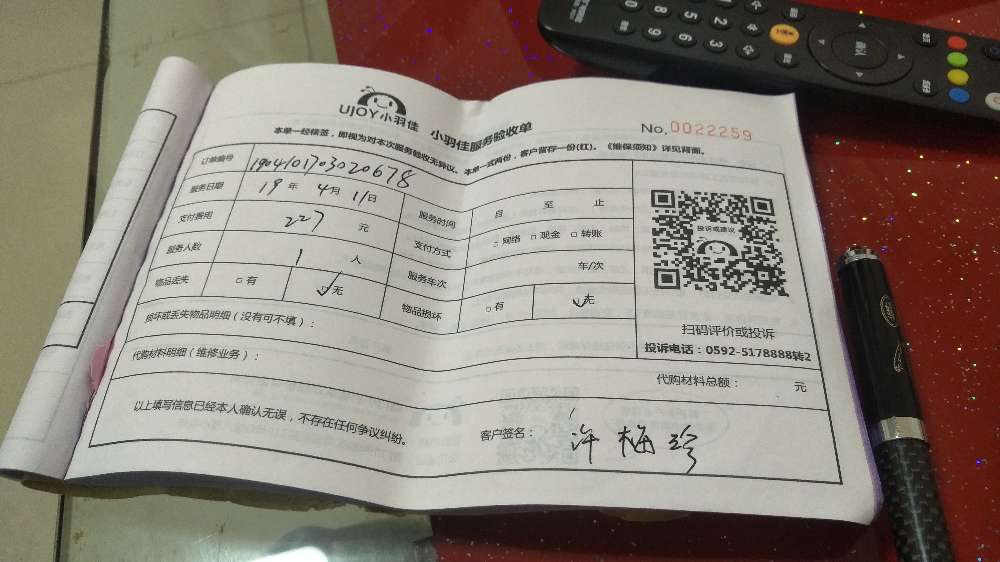 UJOY小羽佳 小羽佳服务验收单
No.0022259
本单一经核签,即视为对本次服务验收无异议。本单一式两份,客户留存一份(红)。《维保须知》详见背面。
订单编号 190401703020678
服务日期 19年 4月 11日 服务时间 自 至 止
支付费用 227 元 支付方式 □网络 □现金 □转账
服务人数 1 人 服务车次 年/次
物品丢失 □有 ☑无 物品损坏 □有 ☑无
投诉或建议
扫码评价或投诉
投诉电话:0592-5178888转2
损坏或丢失物品明细(没有可不填):
代购材料明细(维修业务):
代购材料总额: 元
以上填写信息已经本人确认无误,不存在任何争议纠纷。 客户签名: 许梅珍
0 8 9 6 2 3
确认